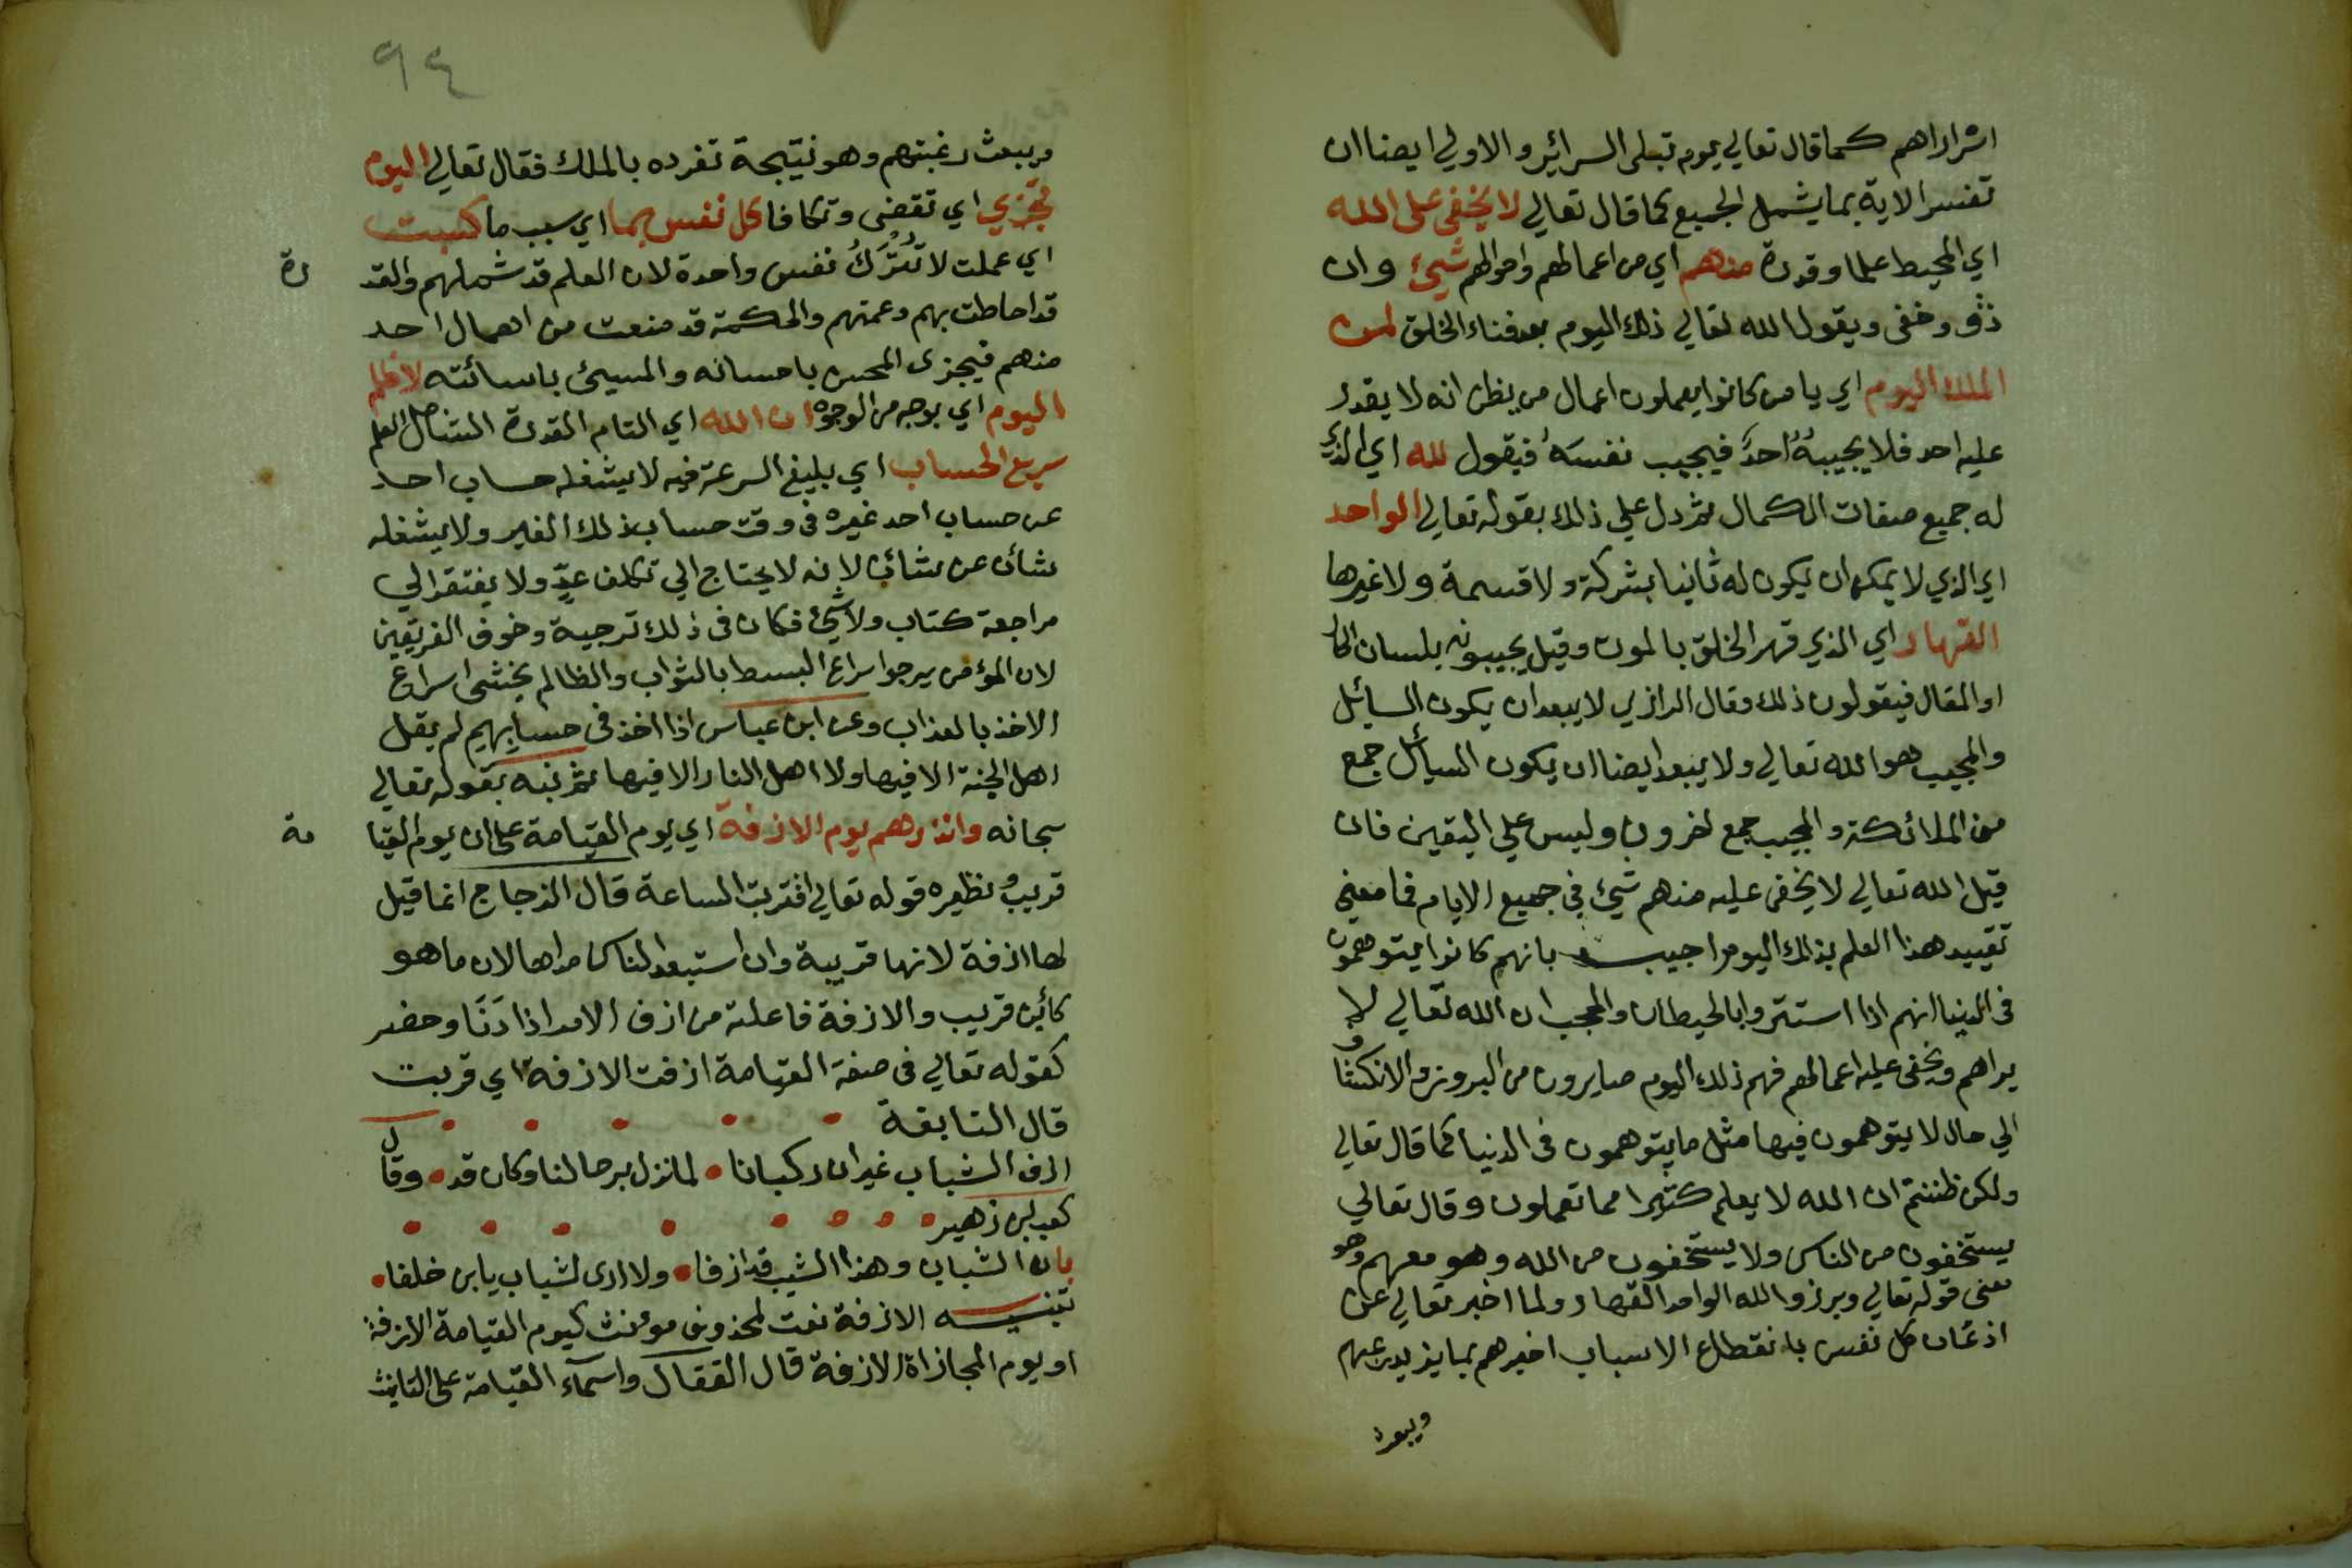 اشرارهم كما قال تعالي يوم تبلى السرائر والاولي ايضا ان
تفسر الاية بما يشمل الجميع كما قال تعالي لا يخفى على الله
اي المحيط علما وقدرة منهم اي من اعمالهم واحوالهم شيئ وان
دق وخفى ويقول الله تعالي ذلك اليوم بعد فناء الخلق لمن
الملك اليوم اي يا من كانوا يعملون اعمال من يظن انه لا يقدر
عليه احد فلا يجيبهُ احدٌ فيجيب نفسَهُ فيقول لله اي الذي
له جميع صفات الكمال ثم دل علي ذلك بقوله تعالي الواحد
اي الذي لا يمكن ان يكون له ثانيا بشركة ولا قسمة ولا غيرها
القهار اي الذي قهر الخلق بالموت وقيل يجيبونه بلسان الحال
او المقال فيقولون ذلك وقال الرازي لا يبعد ان يكون السائل
والمجيب هو الله تعالي ولا يبعد ايضا ان يكون السائل جمع
من الملائكة والمجيب جمع اخرون وليس علي اليقين فان
قيل الله تعالي لا يخفى عليه منهم شيئ في جميع الايام فما معنى
تقييد هذا العلم بذلك اليوم اجيب بانهم كانوا يتوهمون
فى الدنيا انهم اذا استتروا بالحيطان والحجب ان الله تعالي لا
يراهم ويخفى عليه اعمالهم فهم ذلك اليوم صايرون من البروز والانكشاف
الي حال لا يتوهمون فيها مثل ما يتوهمون فى الدنيا كما قال تعالي
ولكن ظننتم ان الله لا يعلم كثيرا مما تعملون وقال تعالي
يستخفون من الناس ولا يستخفون من الله وهو معهم وهو
معنى قوله تعالي وبرزوا لله الواحد القهار ولما اخبر تعالي عن
اذعان كل نفس بانقطاع الاسباب اخبرهم بما يزيد رعبهم
ويبعث
٩٤
ويبعث رغبتهم وهو نتيجة تفرده بالملك فقال تعالي اليوم
تجزي اي تقضى وتكافا كل نفس بما اي بسبب ما كسبت
اي عملت لا تُتْرَكُ نفس واحدة لان العلم قد شملهم والقد
رة
قد احاطت بهم وعمتهم والحكمة قد منعت من اهمال احد
منهم فيجزى المحسن باحسانه والمسيئ باسائته لا ظلم
اليوم اي بوجه من الوجوه ان الله اي التام القدرة الشامل العلم
سريع الحساب اي بليغ السرعة فيه لا يشغله حساب احد
عن حساب احد غيره فى وقت حساب ذلك الغير ولا يشغله
شأن عن شأن لانه لا يحتاج الي تكلف عدٍّ ولا يفتقر الي
مراجعة كتاب ولا شيئ فكان فى ذلك ترجية وخوف الفريقين
لان المؤمن يرجوا اسراع البسط بالثواب والظالم يخشى اسراع
الاخذ بالعذاب وعن ابن عباس اذا اخذ فى حسابهم لم يقل
اهل الجنة الا فيها ولا اهل النار الا فيها ثم نبه بقوله تعالي
سبحانه وانذرهم يوم الازفة اي يوم القيامة على ان يوم القيا
مة
قريب ونظيره قوله تعالي اقتربت الساعة قال الزجاج انما قيل
لها ازفة لانها قريبة وان استبعد الناس مداها لان ما هو
كائن قريب والازفة فاعلة من ازف الامر اذا دَنَا وحضر
كقوله تعالي فى صفة القيامة ازفت الازفة اي قربت
قال النابغة
ازف الشباب غير ان ركبانا • لما نزل برحالنا وكان قد • وقال
كعب بن زهير
بان الشباب وهذا الشيب قد ازفا • ولا ارى لشباب يا بن خلفا •
تنبيه الازفة نعت لمحذوف مونث كيوم القيامة الازفة
او يوم المجازاة الازفة قال القفال واسماء القيامة على التانيث